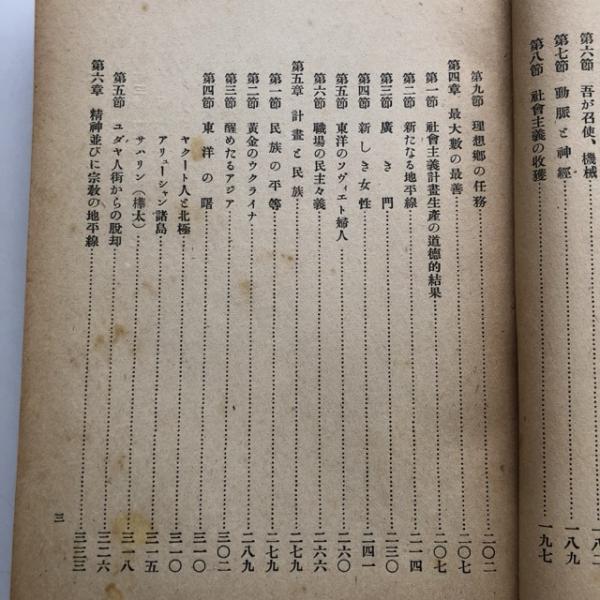 第六節 吾が召使、機械
第七節 動脈と神經……一八九
第八節 社會主義の收獲……一九七
第九節 理想郷の任務……二〇二
第四章 最大數の最善……二〇七
第一節 社會主義計畫生産の道德的結果……二〇七
第二節 新たなる地平線……二一四
第三節 廣き門……二三〇
第四節 新しき女性……二四一
第五節 東洋のソヴィエト婦人……二六〇
第六節 職場の民主々義……二六六
第五章 計畫と民族……二七九
第一節 民族の平等……二七九
第二節 黃金のウクライナ……二八九
第三節 醒めたるアジア……三〇二
第四節 東洋の曙……三一〇
ヤクート人と北極……三一〇
アリューシャン諸島……三一五
サハリン(樺太)……三一八
第五節 ユダヤ人街からの脱却……三二六
第六章 精神並びに宗敎の地平線……三三三
三